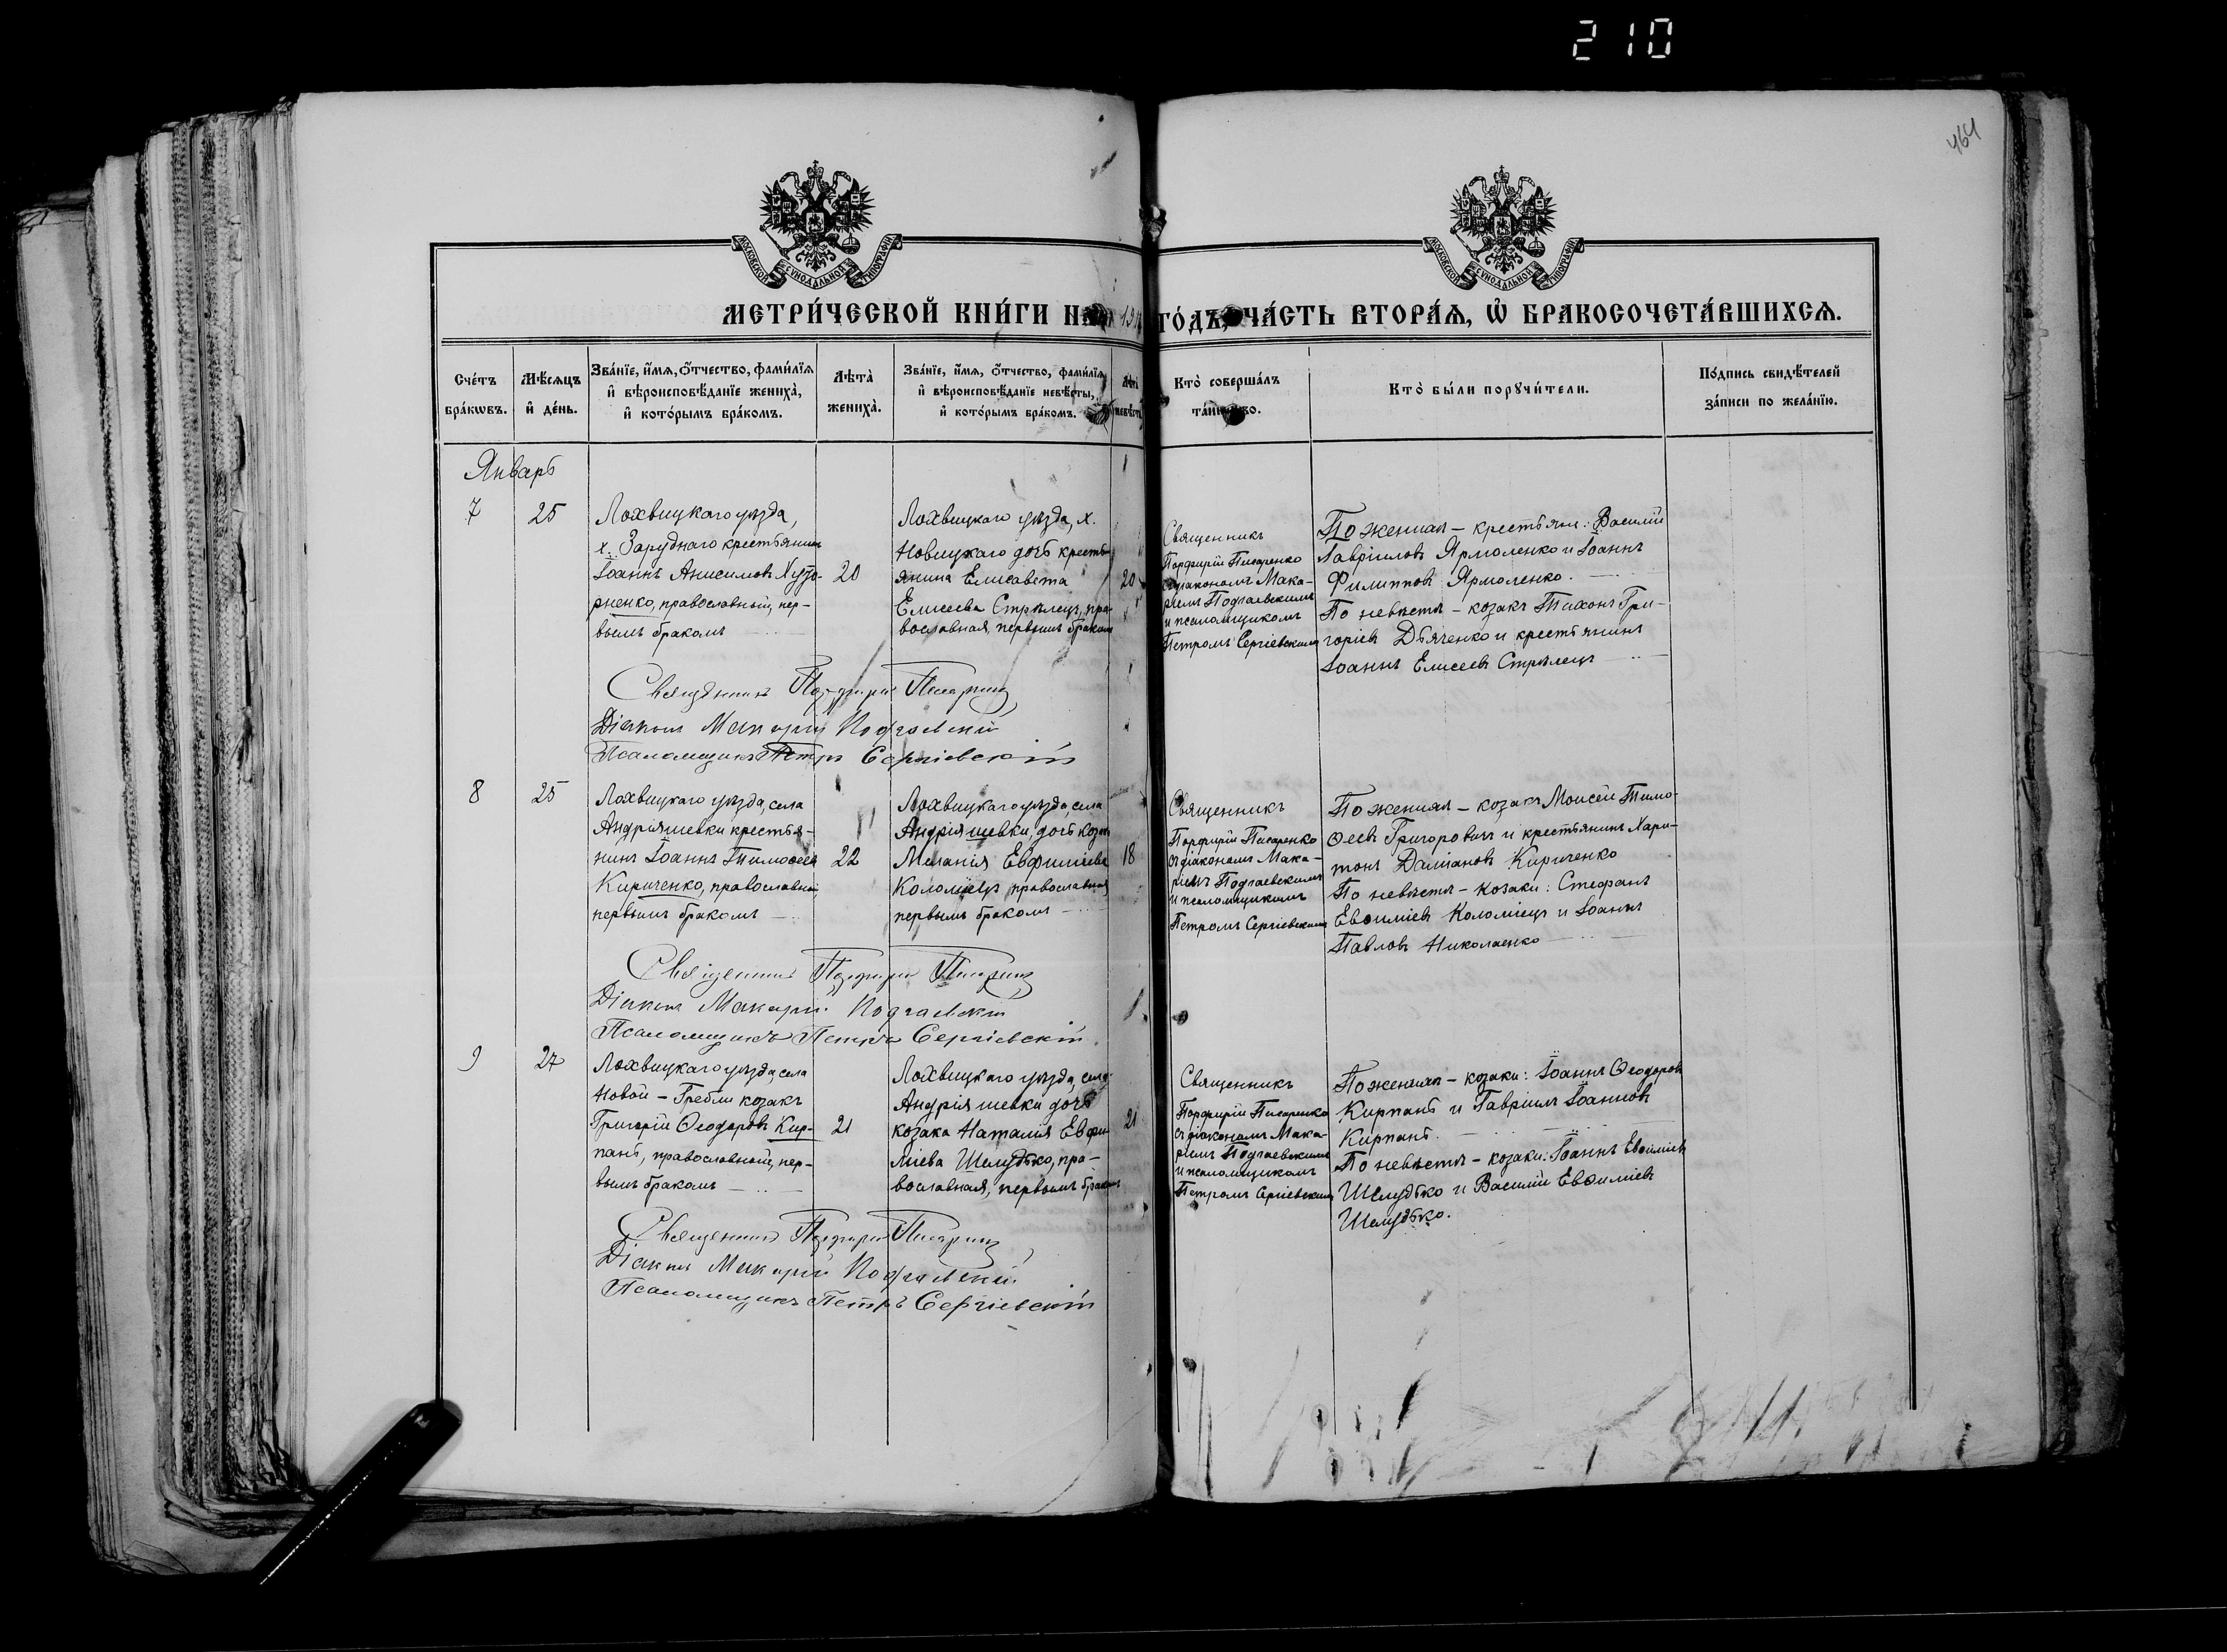 210
464
МОСКОВСКОЙ СѴНОДАЛЬНОЙ ТИПОГРАФІИ
МОСКОВСКОЙ СѴНОДАЛЬНОЙ ТИПОГРАФІИ
МЕТРИ́ЧЕСКОЙ КНИ́ГИ НА 191 ГО́ДЪ, ЧА́СТЬ ВТОРА́Ѧ, Ѽ БРАКОСОЧЕТА́ВШИХСѦ.
Сче́тъ
бра́кѡвъ.
Мѣ́сѧцъ
и҆ де́нь.
Зва́нїе, и҆́мѧ, ѻ҆́тчество, фами́лїѧ
и҆ вѣ́роисповѣ́данїе жениха̀,
и҆ кото́рымъ бра́комъ.
Лѣта̀
жениха̀.
Зва́нїе, и҆́мѧ, ѻ҆́тчество, фами́лїѧ
и҆ вѣ́роисповѣ́данїе невѣ́сты,
и҆ кото́рымъ бра́комъ.
Лѣта̀
невѣ́сты
Кто̀ соверша́лъ
та́инство.
Кто̀ бы́ли порꙋчи́тели.
По́дпись свидѣ́телей
за́писи по жела́нїю.
Январь
7
25
Лохвицкаго уѣзда,
х. Заруднаго крестьянинъ
Іоаннъ Анисимовъ Хуто-
рненко, православный, пер-
вымъ бракомъ
20
Лохвицкаго уѣзда, х.
Новицкаго дочь кресть-
янина Елисавета
Елисеева Стрѣлецъ, пра-
вославная, первымъ бракомъ
20
Священникъ
Порфирій Писаренко
съ діакономъ Мака-
ріемъ Подгаевскимъ
и псаломщикомъ
Петромъ Сергіевскимъ
По женихѣ – крестьяне: Василій
Гавріиловъ Ярмоленко и Іоаннъ
Филипповъ Ярмоленко.
По невѣстѣ – козакъ Тихонъ Гри-
горіевъ Дьяченко и крестьянинъ
Іоаннъ Елисеевъ Стрѣлецъ
Священникъ Порфирій Писаренко
Діаконъ Макарій Подгаевскій
Псаломщикъ Петръ Сергіевскій
8
25
Лохвицкаго уѣзда, села
Андріяшевки крестья-
нинъ Іоаннъ Тимоѳеевъ
Кириченко, православный,
первымъ бракомъ
22
Лохвицкаго уѣзда, села
Андріяшевки, дочь козака
Меланія Евфиміева
Коломіецъ, православная,
первымъ бракомъ
18
Священникъ
Порфирій Писаренко
съ діакономъ Мака-
ріемъ Подгаевскимъ
и псаломщикомъ
Петромъ Сергіевскимъ
По женихѣ – козакъ Моисей Тимо-
ѳеевъ Григоровичъ и крестьянинъ Хари-
тонъ Даміановъ Кириченко
По невѣстѣ – козаки: Стефанъ
Евѳиміевъ Коломіецъ и Іоаннъ
Павловъ Николаенко
Священникъ Порфирій Писаренко
Діаконъ Макарій Подгаевскій
Псаломщикъ Петръ Сергіевскій.
9
27
Лохвицкаго уѣзда, села
Новой – Гребли козакъ
Григорій Ѳеодоровъ Кир-
пань, православный, пер-
вымъ бракомъ
21
Лохвицкаго уѣзда, села
Андріяшевки дочь
козака Наталія Евфи-
міева Шелудько, пра-
вославная, первымъ бракомъ
21
Священникъ
Порфирій Писаренко
съ діакономъ Мака-
ріемъ Подгаевскимъ
и псаломщикомъ
Петромъ Сергіевскимъ
По женихѣ – козаки: Іоаннъ Ѳеодоровъ
Кирпань и Гавріилъ Іоанновъ
Кирпань.
По невѣстѣ – козаки: Іоаннъ Евѳиміевъ
Шелудько и Василій Евѳиміевъ
Шелудько.
Священникъ Порфирій Писаренко
Діаконъ Макарій Подгаевскій
Псаломщикъ Петръ Сергіевскій